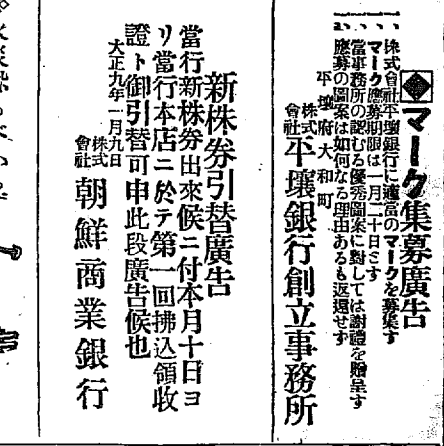 ◆マーク集募廣告
株式會社平壤銀行に適當のマークを募集す
マーク應募期限は一月二十日とす
當事務所の認むる優秀圖案に對しては謝禮を贈呈す
應募の圖案は如何なる理由あるも返還せず
平壤府大和町
株式會社平壤銀行創立事務所
新株券引替廣告
當行新株券出來候ニ付本月十日ヨ
リ當行本店ニ於テ第一回拂込領收
證ト御引替可申此段廣告候也
大正九年一月九日
株式會社朝鮮商業銀行